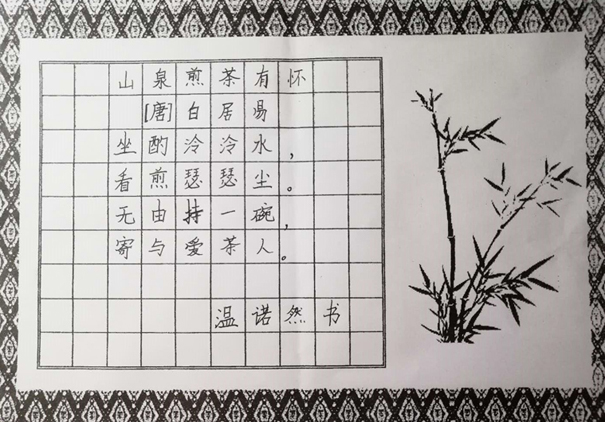 山泉煎茶有怀
[唐]白居易
坐酌泠泠水，
看煎瑟瑟尘。
无由持一碗，
寄与爱茶人。
温诺然书